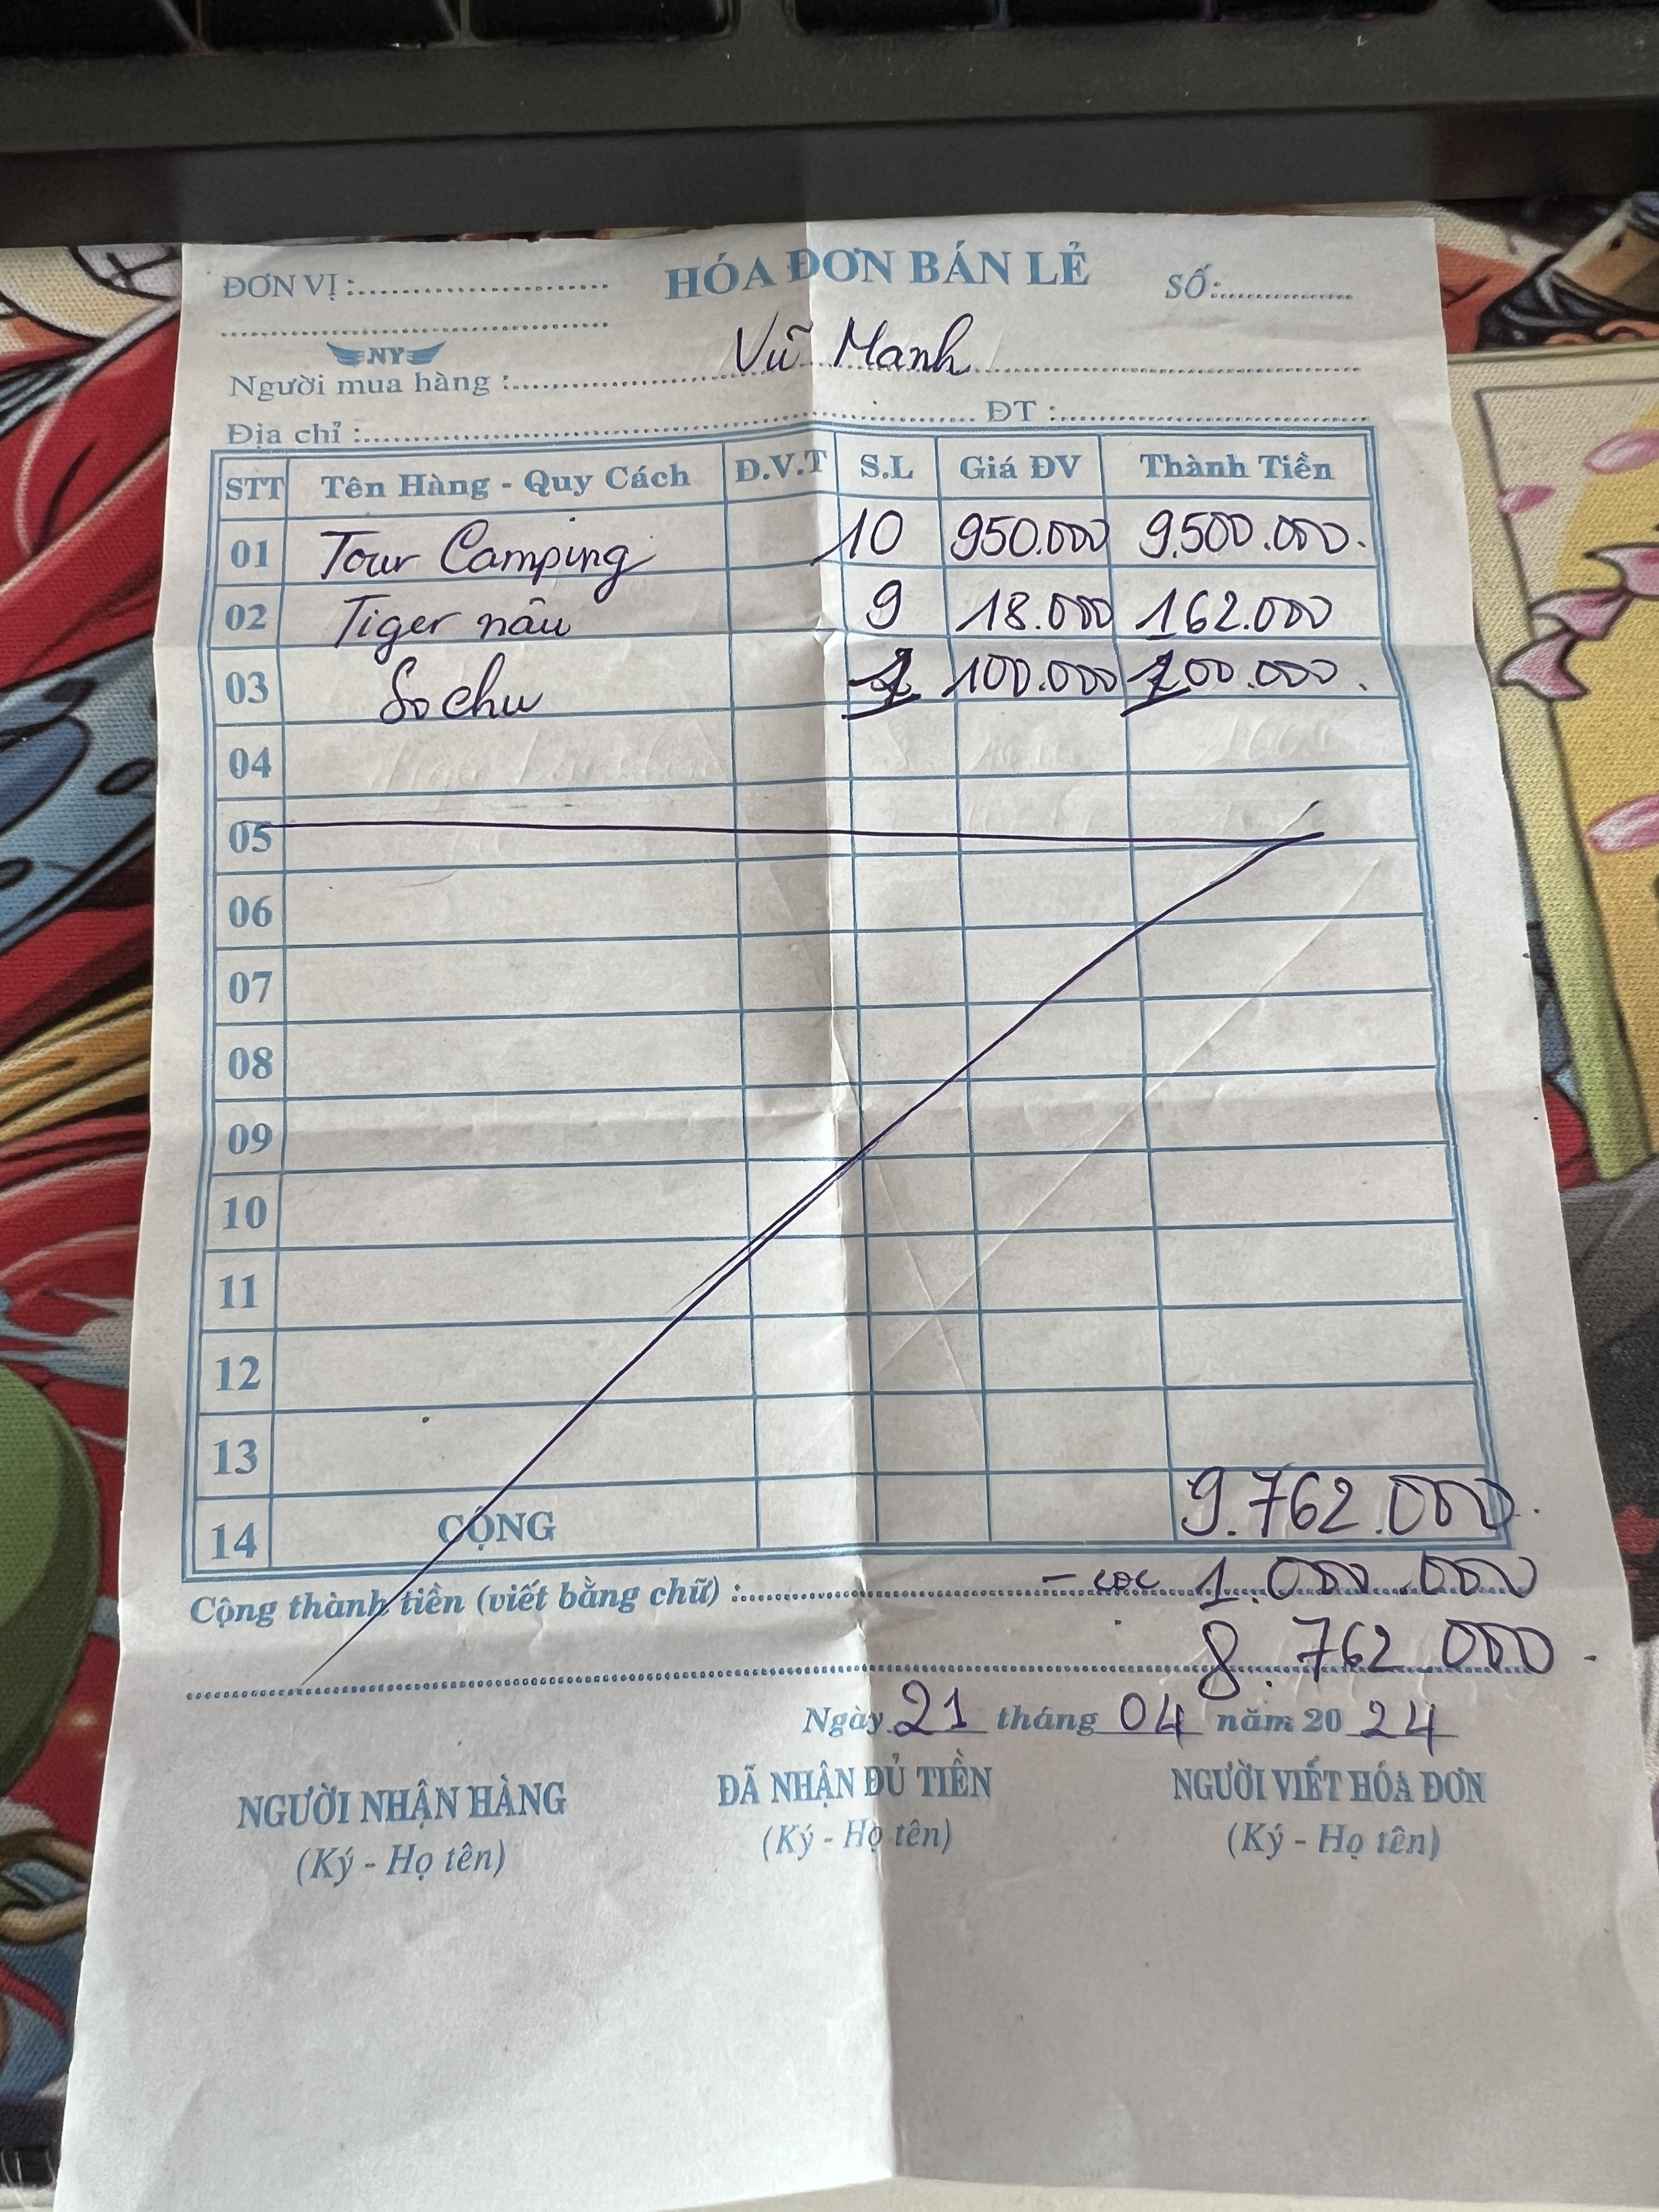 ĐƠN VỊ : HÓA ĐƠN BÁN LẺ SỐ:
NY
Người mua hàng : Vũ Manh
Địa chỉ : ĐT :
STT Tên Hàng - Quy Cách Đ.V.T S.L Giá ĐV Thành Tiền
01 Tour Camping 10 950.000 9.500.000.
02 Tiger nâu 9 18.000 162.000
03 Sochu 1 100.000 100.000.
04
05
06
07
08
09
10
11
12
13
14 CỘNG 9.762.000.
Cộng thành tiền (viết bằng chữ) : - cọc 1.000.000
8.762.000.
Ngày 21 tháng 04 năm 20 24
NGƯỜI NHẬN HÀNG ĐÃ NHẬN ĐỦ TIỀN NGƯỜI VIẾT HÓA ĐƠN
(Ký - Họ tên) (Ký - Họ tên) (Ký - Họ tên)